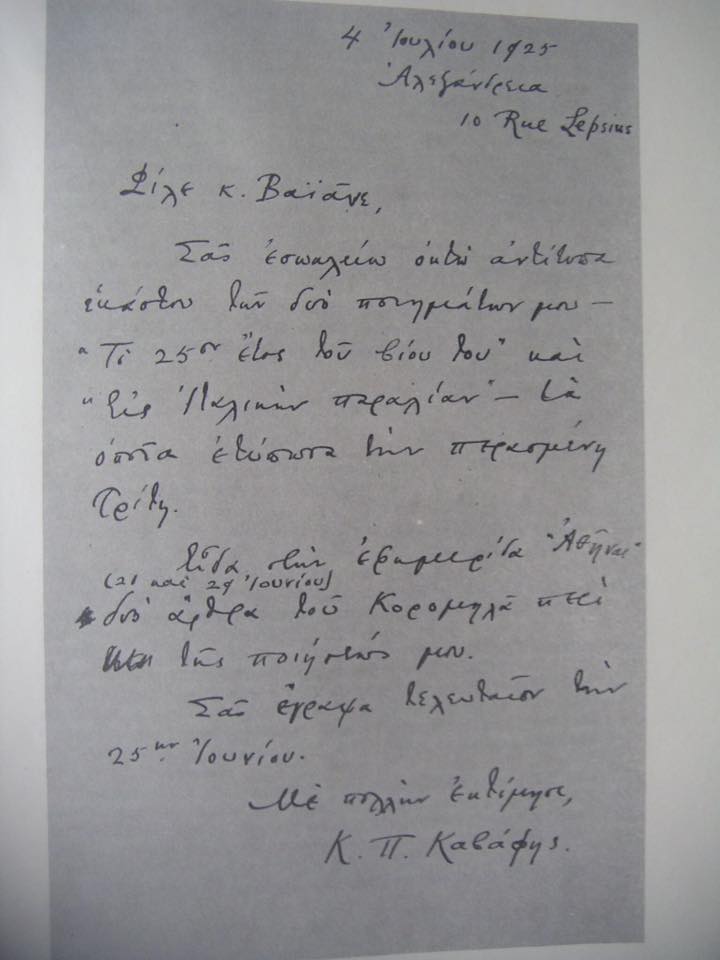 4 Ἰουλίου 1925
Ἀλεξάνδρεια
10 Rue Lepsius
Φίλε κ. Βαϊᾶνε,
Σᾶς ἐσωκλείω ὀκτὼ ἀντίτυπα
ἑκάστου τῶν δυὸ ποιημάτων μου —
"Τὸ 25ον ἔτος τοῦ βίου του" καὶ
"Εἰς Ἰταλικὴν παραλίαν" — τὰ
ὁποῖα ἐτύπωσα τὴν περασμένη
Τρίτη.
Εἶδα στὴν ἐφημερίδα "Ἀθῆναι"
(21 καὶ 29 Ἰουνίου)
δυὸ ἄρθρα τοῦ Κορομηλᾶ περὶ
τῆς ποιήσεώς μου.
Σᾶς ἔγραψα τελευταῖον τὴν
25ην Ἰουνίου.
Μὲ πολλὴν ἐκτίμησι,
Κ. Π. Καβάφης.